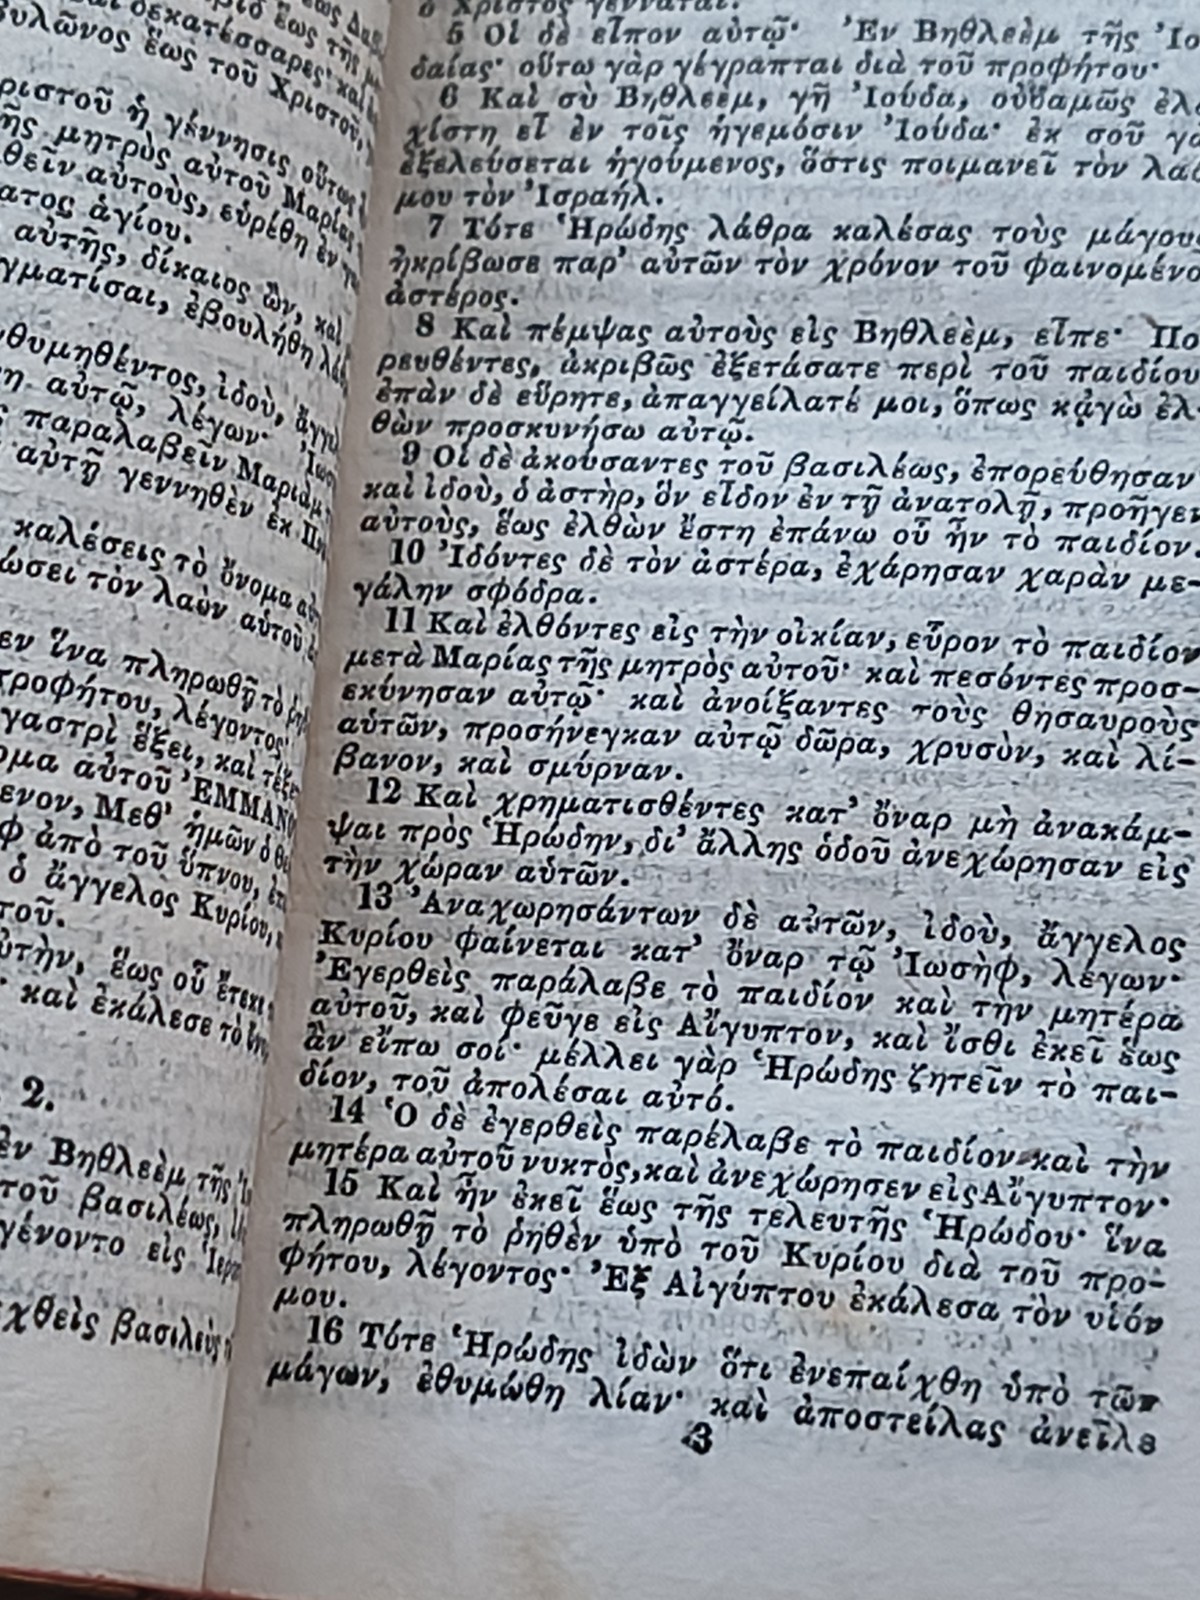 δεκατέσσαρες· καὶ
βυλῶνος ἕως τοῦ Χριστοῦ,
ριστοῦ ἡ γέννησις οὕτως
ῆς μητρὸς αὐτοῦ Μαρίας
θεῖν αὐτοὺς, εὑρέθη ἐν γα
ατος ἁγίου.
αὐτῆς, δίκαιος ὢν, καὶ
γματίσαι, ἐβουλήθη λάθ
νθυμηθέντος, ἰδοὺ, ἄγγελ
η αὐτῷ, λέγων· Ἰωσ
ς παραλαβεῖν Μαριὰμ τ
αὐτῇ γεννηθὲν ἐκ Πν
καλέσεις τὸ ὄνομα αὐτ
ώσει τὸν λαὸν αὐτοῦ ἀ
εν ἵνα πληρωθῇ τὸ ῥηθ
προφήτου, λέγοντος·
γαστρὶ ἕξει, καὶ τέξε
ομα αὐτοῦ ἘΜΜΑΝΟ
ενον, Μεθ’ ἡμῶν ὁ θε
φ ἀπὸ τοῦ ὕπνου, ἐπ
ὁ ἄγγελος Κυρίου, κ
τοῦ.
ὐτὴν, ἕως οὗ ἔτεκε τ
· καὶ ἐκάλεσε τὸ ὄνο
2.
ἐν Βηθλεὲμ τῆς Ἰο
τοῦ βασιλέως, ἰδ
γένοντο εἰς Ἱερο
χθεὶς βασιλεὺς τ
ὁ Χριστὸς γεννᾶται.
5 Οἱ δὲ εἶπον αὐτῷ· Ἐν Βηθλεὲμ τῆς Ἰο
δαίας· οὕτω γὰρ γέγραπται διὰ τοῦ προφήτου·
6 Καὶ σὺ Βηθλεὲμ, γῆ Ἰούδα, οὐδαμῶς ἐλ
χίστη εἶ ἐν τοῖς ἡγεμόσιν Ἰούδα· ἐκ σοῦ γὰ
ἐξελεύσεται ἡγούμενος, ὅστις ποιμανεῖ τὸν λαό
μου τὸν Ἰσραήλ.
7 Τότε Ἡρώδης λάθρα καλέσας τοὺς μάγους
ἠκρίβωσε παρ’ αὐτῶν τὸν χρόνον τοῦ φαινομένο
ἀστέρος.
8 Καὶ πέμψας αὐτοὺς εἰς Βηθλεὲμ, εἶπε· Πο
ρευθέντες, ἀκριβῶς ἐξετάσατε περὶ τοῦ παιδίου
ἐπὰν δὲ εὕρητε, ἀπαγγείλατέ μοι, ὅπως κᾀγὼ ἐλ
θὼν προσκυνήσω αὐτῷ.
9 Οἱ δὲ ἀκούσαντες τοῦ βασιλέως, ἐπορεύθησαν
καὶ ἰδοὺ, ὁ ἀστὴρ, ὃν εἶδον ἐν τῇ ἀνατολῇ, προῆγεν
αὐτοὺς, ἕως ἐλθὼν ἔστη ἐπάνω οὗ ἦν τὸ παιδίον
10 Ἰδόντες δὲ τὸν ἀστέρα, ἐχάρησαν χαρὰν με-
γάλην σφόδρα.
11 Καὶ ἐλθόντες εἰς τὴν οἰκίαν, εὗρον τὸ παιδίον
μετὰ Μαρίας τῆς μητρὸς αὐτοῦ· καὶ πεσόντες προσ-
εκύνησαν αὐτῷ· καὶ ἀνοίξαντες τοὺς θησαυροὺς
αὑτῶν, προσήνεγκαν αὐτῷ δῶρα, χρυσὸν, καὶ λί-
βανον, καὶ σμύρναν.
12 Καὶ χρηματισθέντες κατ’ ὄναρ μὴ ἀνακάμ-
ψαι πρὸς Ἡρώδην, δι’ ἄλλης ὁδοῦ ἀνεχώρησαν εἰς
τὴν χώραν αὑτῶν.
13 Ἀναχωρησάντων δὲ αὐτῶν, ἰδοὺ, ἄγγελος
Κυρίου φαίνεται κατ’ ὄναρ τῷ Ἰωσὴφ, λέγων·
Ἐγερθεὶς παράλαβε τὸ παιδίον καὶ τὴν μητέρα
αὐτοῦ, καὶ φεῦγε εἰς Αἴγυπτον, καὶ ἴσθι ἐκεῖ ἕως
ἂν εἴπω σοί· μέλλει γὰρ Ἡρώδης ζητεῖν τὸ παι-
δίον, τοῦ ἀπολέσαι αὐτό.
14 Ὁ δὲ ἐγερθεὶς παρέλαβε τὸ παιδίον καὶ τὴν
μητέρα αὐτοῦ νυκτὸς, καὶ ἀνεχώρησεν εἰς Αἴγυπτον·
15 Καὶ ἦν ἐκεῖ ἕως τῆς τελευτῆς Ἡρώδου· ἵνα
πληρωθῇ τὸ ῥηθὲν ὑπὸ τοῦ Κυρίου διὰ τοῦ προ-
φήτου, λέγοντος· Ἐξ Αἰγύπτου ἐκάλεσα τὸν υἱόν
μου.
16 Τότε Ἡρώδης ἰδὼν ὅτι ἐνεπαίχθη ὑπὸ τῶν
μάγων, ἐθυμώθη λίαν· καὶ ἀποστείλας ἀνεῖλε
3